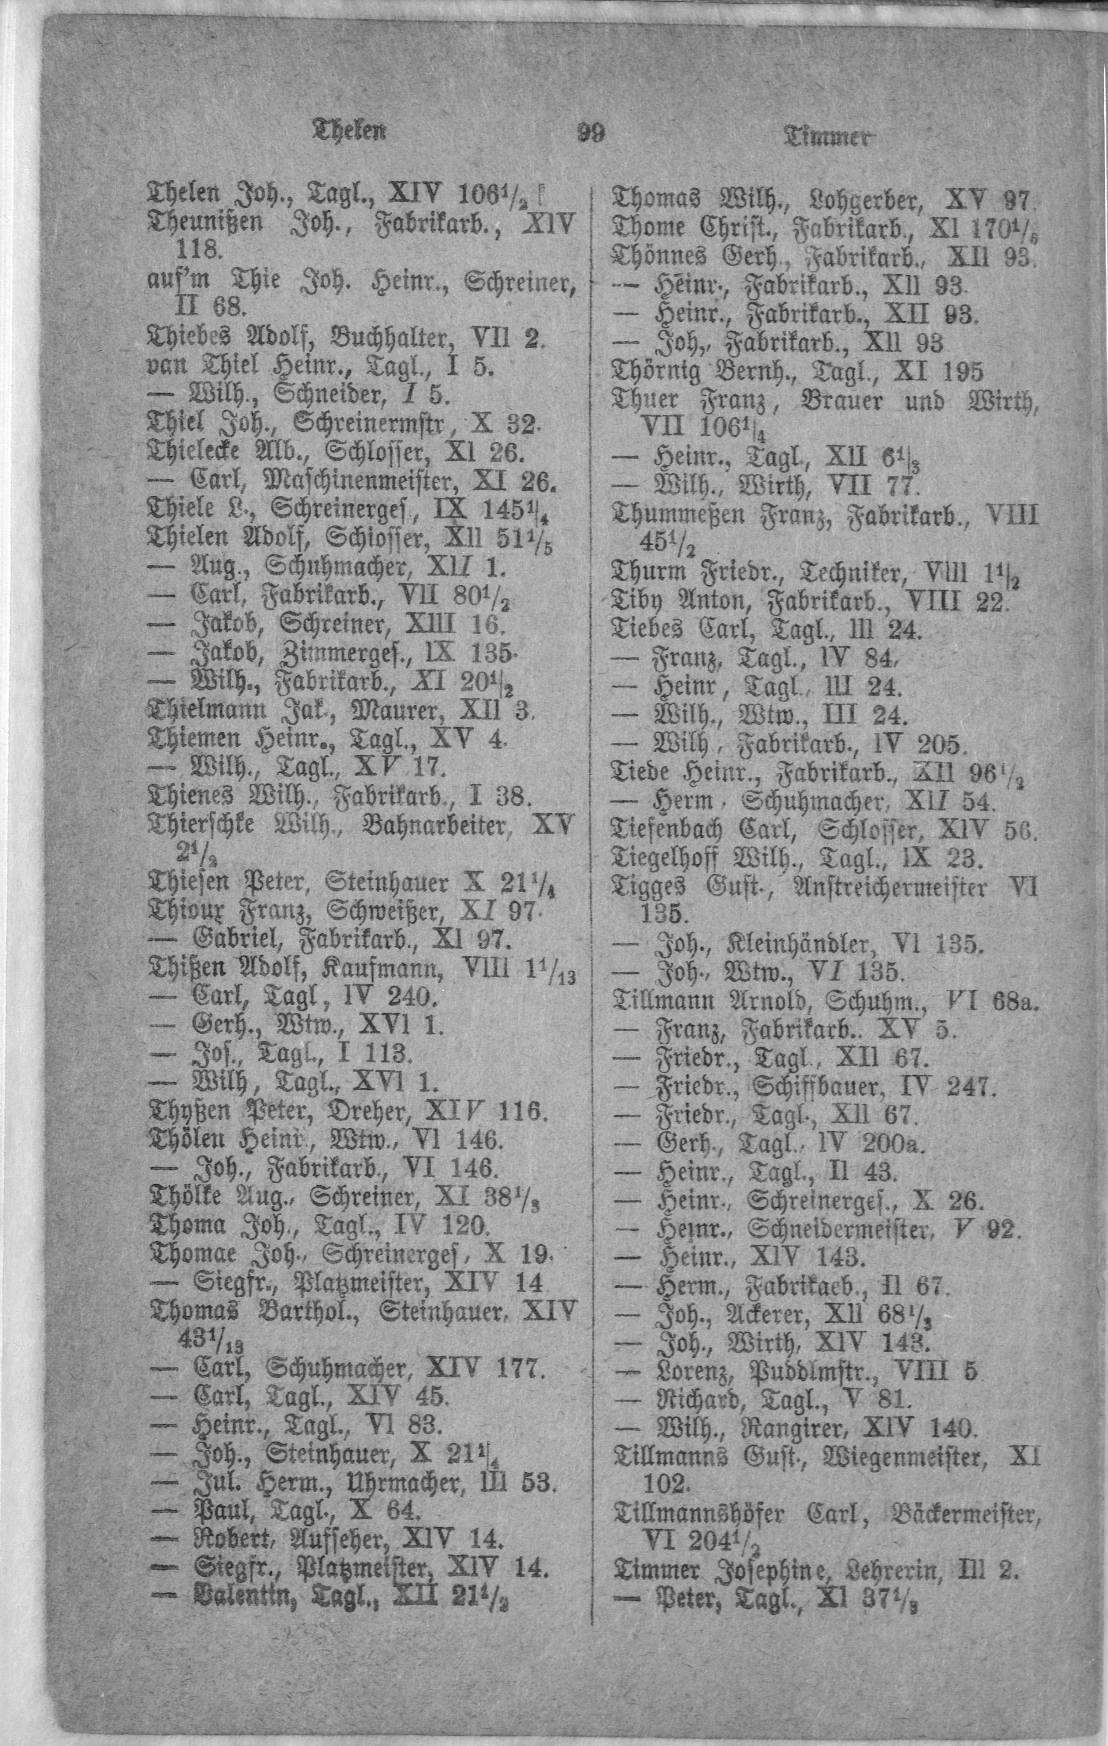 Thelen
99
Timmer
Thelen Joh., Tagl., XIV 106¹/₂
Theunißen Joh., Fabrikarb., XIV
118.
auf'm Thie Joh. Heinr., Schreiner,
II 68.
Thiebes Adolf, Buchhalter, VII 2.
van Thiel Heinr., Tagl., I 5.
— Wilh., Schneider, I 5.
Thiel Joh., Schreinermstr, X 32.
Thielecke Alb., Schlosser, XI 26.
— Carl, Maschinenmeister, XI 26.
Thiele L., Schreinerges, IX 145¹/₄
Thielen Adolf, Schiosser, XII 51¹/₅
— Aug., Schuhmacher, XII 1.
— Carl, Fabrikarb., VII 80¹/₂
— Jakob, Schreiner, XIII 16.
— Jakob, Zimmerges., IX 135.
— Wilh., Fabrikarb., XI 20¹/₂
Thielmann Jak., Maurer, XII 3.
Thiemen Heinr., Tagl., XV 4.
— Wilh., Tagl., XV 17.
Thienes Wilh., Fabrikarb., I 38.
Thierschke Wilh., Bahnarbeiter, XV
2¹/₂
Thiesen Peter, Steinhauer X 21¹/₄
Thioux Franz, Schweißer, XI 97.
— Gabriel, Fabrikarb., XI 97.
Thißen Adolf, Kaufmann, VIII 1¹/₁₃
— Carl, Tagl, IV 240.
— Gerh., Wtw., XVI 1.
— Jos., Tagl., I 113.
— Wilh, Tagl., XVI 1.
Thyßen Peter, Dreher, XIV 116.
Thölen Heinr., Wtw., VI 146.
— Joh., Fabrikarb., VI 146.
Thölke Aug., Schreiner, XI 38¹/₃
Thoma Joh., Tagl., IV 120.
Thomae Joh., Schreinerges, X 19.
— Siegfr., Platzmeister, XIV 14
Thomas Barthol., Steinhauer, XIV
43¹/₁₃
— Carl, Schuhmacher, XIV 177.
— Carl, Tagl., XIV 45.
— Heinr., Tagl., VI 83.
— Joh., Steinhauer, X 21¹/₄
— Jul. Herm., Uhrmacher, III 53.
— Paul, Tagl., X 64.
— Robert, Aufseher, XIV 14.
— Siegfr., Platzmeister, XIV 14.
— Valentin, Tagl., XII 21¹/₂
Thomas Wilh., Lohgerber, XV 97.
Thome Christ., Fabrikarb., XI 170¹/₅
Thönnes Gerh., Fabrikarb., XII 93.
— Heinr., Fabrikarb., XII 93.
— Heinr., Fabrikarb., XII 93.
— Joh,. Fabrikarb., XII 93
Thörnig Bernh., Tagl., XI 195
Thuer Franz, Brauer und Wirth,
VII 106¹/₄
— Heinr., Tagl., XII 6¹/₃
— Wilh., Wirth, VII 77.
Thummeßen Franz, Fabrikarb., VIII
45¹/₂
Thurm Friedr., Techniker, VIII 1¹/₂
Tiby Anton, Fabrikarb., VIII 22.
Tiebes Carl, Tagl., III 24.
— Franz, Tagl., IV 84.
— Heinr, Tagl., III 24.
— Wilh., Wtw., III 24.
— Wilh. Fabrikarb., IV 205.
Tiede Heinr., Fabrikarb., XII 96¹/₂
— Herm. Schuhmacher, XII 54.
Tiefenbach Carl, Schlosser, XIV 56.
Tiegelhoff Wilh., Tagl., IX 23.
Tigges Gust., Anstreichermeister VI
135.
— Joh., Kleinhändler, VI 135.
— Joh., Wtw., VI 135.
Tillmann Arnold, Schuhm., VI 68a.
— Franz, Fabrikarb.. XV 5.
— Friedr., Tagl., XII 67.
— Friedr., Schiffbauer, IV 247.
— Friedr., Tagl., XII 67.
— Gerh., Tagl., IV 200a.
— Heinr., Tagl., II 43.
— Heinr., Schreinerges., X 26.
— Heinr., Schneidermeister, V 92.
— Heinr., XIV 143.
— Herm., Fabrikaeb., II 67.
— Joh., Ackerer, XII 68¹/₃
— Joh., Wirth, XIV 143.
— Lorenz, Puddlmstr., VIII 5
— Richard, Tagl., V 81.
— Wilh., Rangirer, XIV 140.
Tillmanns Gust., Wiegenmeister, XI
102.
Tillmannshöfer Carl, Bäckermeister,
VI 204¹/₂
Timmer Josephine, Lehrerin, III 2.
— Peter, Tagl., XI 37¹/₃